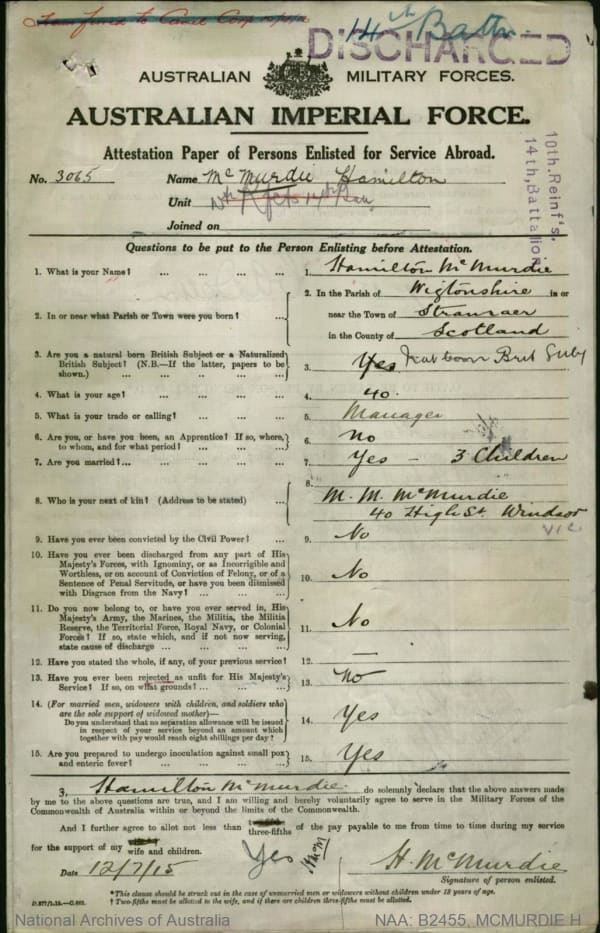 Transferred to Camel Corps
14th Battn.
DISCHARGED
AUSTRALIAN MILITARY FORCES.
AUSTRALIAN IMPERIAL FORCE.
Attestation Paper of Persons Enlisted for Service Abroad.
10th. Reinf's.
14th. Battalion
No. 3065 Name McMurdie Hamilton
Unit
Joined on
Questions to be put to the Person Enlisting before Attestation.
1. What is your Name? ... ... ... ... 1. Hamilton McMurdie
2. In or near what Parish or Town were you born? ... ... 2. In the Parish of Wigtonshire in or
near the Town of Stranraer
in the County of Scotland
3. Are you a natural born British Subject or a Naturalized
British Subject? (N.B.—If the latter, papers to be
shown.) ... ... ... ... 3. Yes Nat born Brit Subj
4. What is your age? ... ... ... ... 4. 40.
5. What is your trade or calling? ... ... ... 5. Manager
6. Are you, or have you been, an Apprentice? If so, where,
to whom, and for what period? ... ... ... 6. No
7. Are you married?... ... ... ... ... 7. Yes - 3 Children
8. Who is your next of kin? (Address to be stated) ... 8. M. M. McMurdie
40 High St. Windsor
VIC.
9. Have you ever been convicted by the Civil Power? ... 9. No
10. Have you ever been discharged from any part of His
Majesty's Forces, with Ignominy, or as Incorrigible and
Worthless, or on account of Conviction of Felony, or of a
Sentence of Penal Servitude, or have you been dismissed
with Disgrace from the Navy? ... ... ... 10. No
11. Do you now belong to, or have you ever served in, His
Majesty's Army, the Marines, the Militia, the Militia
Reserve, the Territorial Force, Royal Navy, or Colonial
Forces? If so, state which, and if not now serving,
state cause of discharge ... ... ... 11. No
12. Have you stated the whole, if any, of your previous service? 12. —
13. Have you ever been rejected as unfit for His Majesty's
Service? If so, on what grounds? ... ... ... 13. No
14. (For married men, widowers with children, and soldiers who
are the sole support of widowed mother)—
Do you understand that no separation allowance will be issued
in respect of your service beyond an amount which
together with pay would reach eight shillings per day? 14. Yes
15. Are you prepared to undergo inoculation against small pox
and enteric fever? ... ... ... ... 15. Yes
I, Hamilton McMurdie do solemnly declare that the above answers made
by me to the above questions are true, and I am willing and hereby voluntarily agree to serve in the Military Forces of the
Commonwealth of Australia within or beyond the limits of the Commonwealth.
And I further agree to allot not less than three-fifths of the pay payable to me from time to time during my service
for the support of my wife and children. Yes HMcM
Date 12/7/15 H. McMurdie
Signature of person enlisted.
*This clause should be struck out in the case of unmarried men or widowers without children under 18 years of age.
† Two-fifths must be allotted to the wife, and if there are children three-fifths must be allotted.
National Archives of Australia NAA: B2455, MCMURDIE H